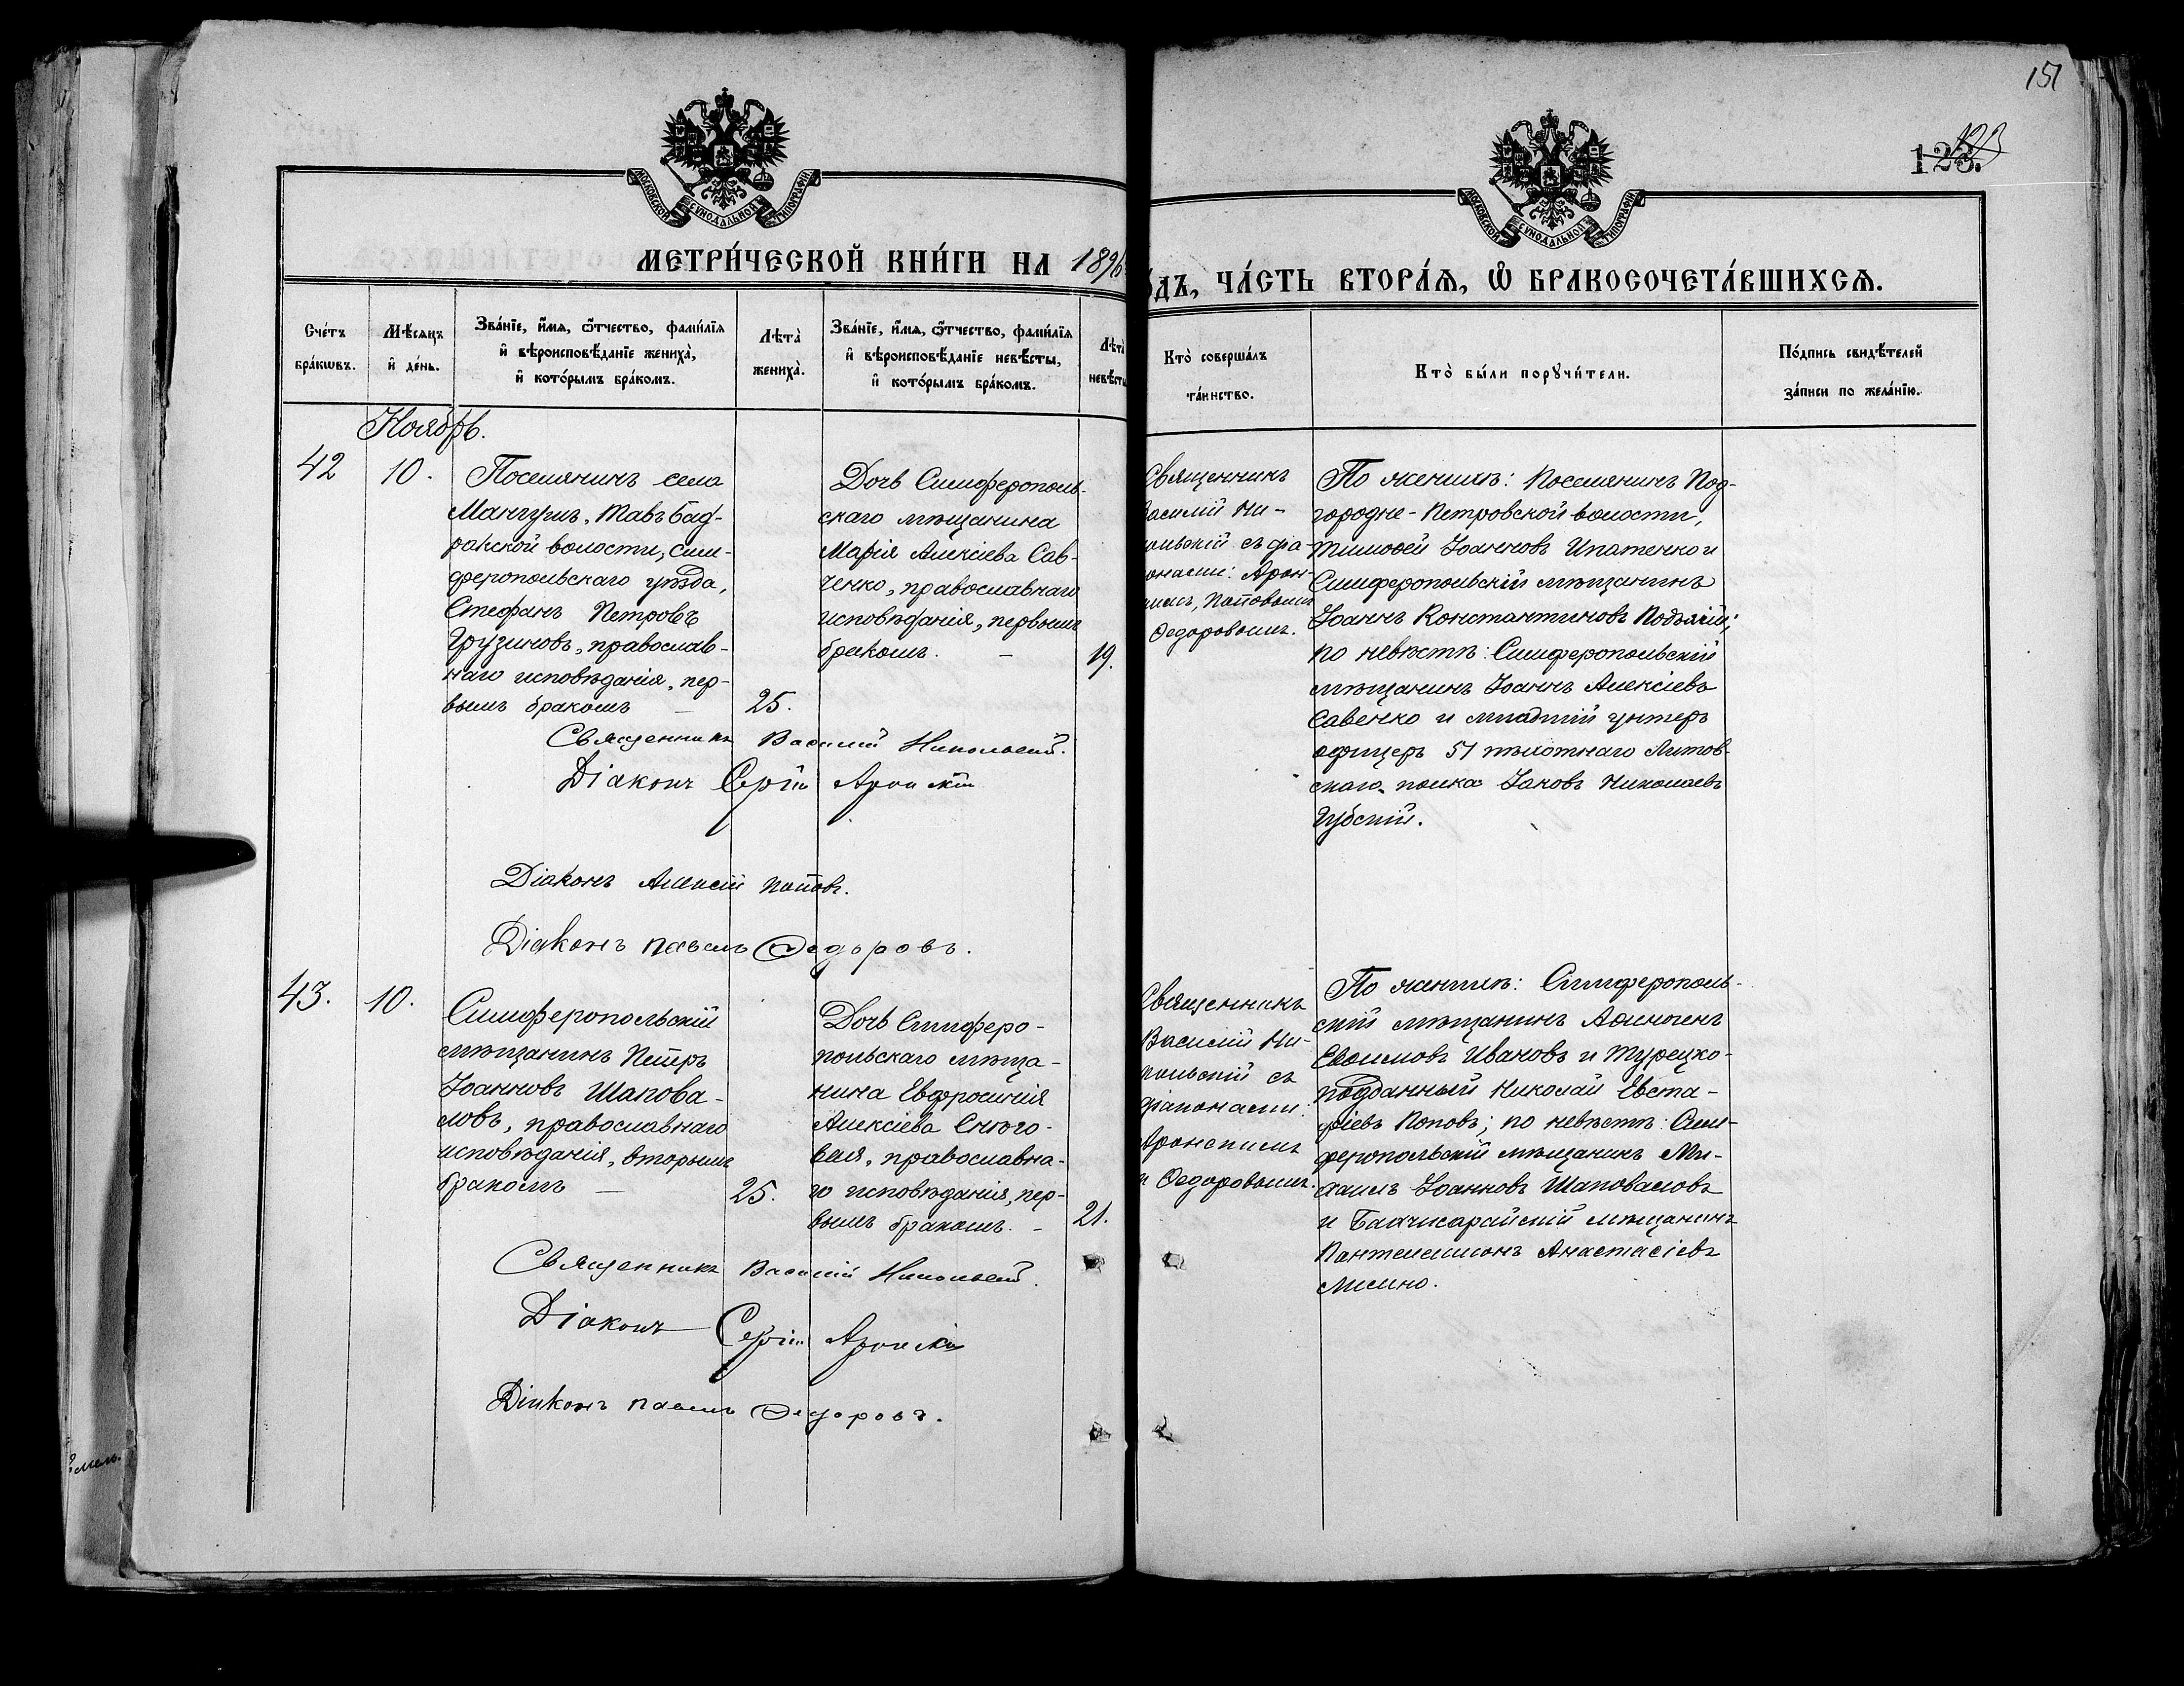 151
123
128.
МОСКОВСКОЙ СѴНОДАЛЬНОЙ ТИПОГРАФІИ
МОСКОВСКОЙ СѴНОДАЛЬНОЙ ТИПОГРАФІИ
МЕТРИ́ЧЕСКОЙ КНИ́ГИ НА 1896
ѻдъ, ЧА́СТЬ ВТОРА́Ѧ, Ѡ҆ БРАКОСОЧЕТА́ВШИХСѦ.
Сче́тъ
бра́кѡвъ.
Мѣ́сѧцъ
и҆ де́нь.
Зва́нїе, и҆́мѧ, ѻ҆́тчество, фамі́лїѧ
и҆ вѣроисповѣ́данїе жениха̀,
и҆ кото́рымъ бра́комъ.
Лѣта̀
жениха̀.
Зва́нїе, и҆́мѧ, ѻ҆́тчество, фамі́лїѧ
и҆ вѣроисповѣ́данїе невѣ́сты,
и҆ кото́рымъ бра́комъ.
Лѣта̀
невѣ́сты
Кто̀ соверша́лъ
та́инство.
Кто̀ бы́ли порꙋчи́тели.
По́дпись свидѣ́телей
за́писи по жела́нїю.
Ноябрь.
42
10.
Поселянинъ села
Мангушъ, Тавъ бад-
ракской волости, Сим-
феропольскаго уѣзда,
Стефанъ Петровъ
Грузиновъ, православ-
наго исповѣданія, пер-
вымъ бракомъ —
25.
Дочь Симферополь-
скаго мѣщанина
Марія Алексіева Сав-
ченко, православнаго
исповѣданія, первымъ
бракомъ. —
19.
Священникъ
Василій Ни-
кольскій съ діа-
конами: Арон-
Поповымъ
Ѳедоровымъ.
По женихѣ: Поселянинъ Под-
городне-Петровской волости,
Тимоѳей Іоанновъ Ипатенко и
Симферопольскій мѣщанинъ
Іоаннъ Константиновъ Подъячій;
по невѣстѣ: Симферопольскій
мѣщанинъ Іоаннъ Алексіевъ
Савенко и младшій унтеръ
офицеръ 51 пѣхотнаго Литов-
скаго полка Іаковъ Николаевъ
Губскій.
Священникъ Василій Никольскій.
Діаконъ Сергій
Діаконъ Алексій Поповъ.
Діаконъ Павелъ Ѳедоровъ.
43.
10.
Симферопольскій
мѣщанинъ Петръ
Іоанновъ Шапова-
ловъ, православнаго
исповѣданія, вторымъ
бракомъ —
25.
Дочь Симферо-
польскаго мѣща-
нина Евфросинія
Алексіева Снюго-
вая, православна-
го исповѣданія, пер-
вымъ бракомъ. —
21.
Священникъ
Василій Ни-
кольскій съ
діаконами:
и Ѳедоровымъ.
По женихѣ: Симферополь-
скій мѣщанинъ Аѳиногенъ
Евѳимовъ Ивановъ и Турецко-
подданный Николай Евста-
фіевъ Поповъ; по невѣстѣ: Сим-
феропольскій мѣщанинъ Ми-
хаилъ Іоанновъ Шаповаловъ
и Бахчисарайскій мѣщанинъ
Пантелеимонъ Анастасіевъ
Лисино.
Священникъ Василій Никольскій.
Діаконъ Сергій
Діаконъ Павелъ Ѳедоровъ.